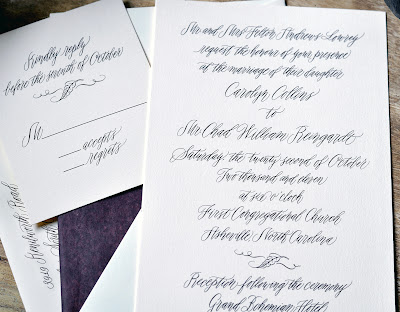 Kindly reply
before the seventh of October
M
accepts
regrets
Kenilworth Road
Mr and Mrs Felton Andrews Lowrey
request the honour of your presence
at the marriage of their daughter
Carolyn Collens
to
Mr Chad William Baingarde
Saturday, the twenty second of October
Two thousand and eleven
at six o'clock
First Congregational Church
Asheville, North Carolina
Reception following the ceremony
Grand Bohemian Hotel